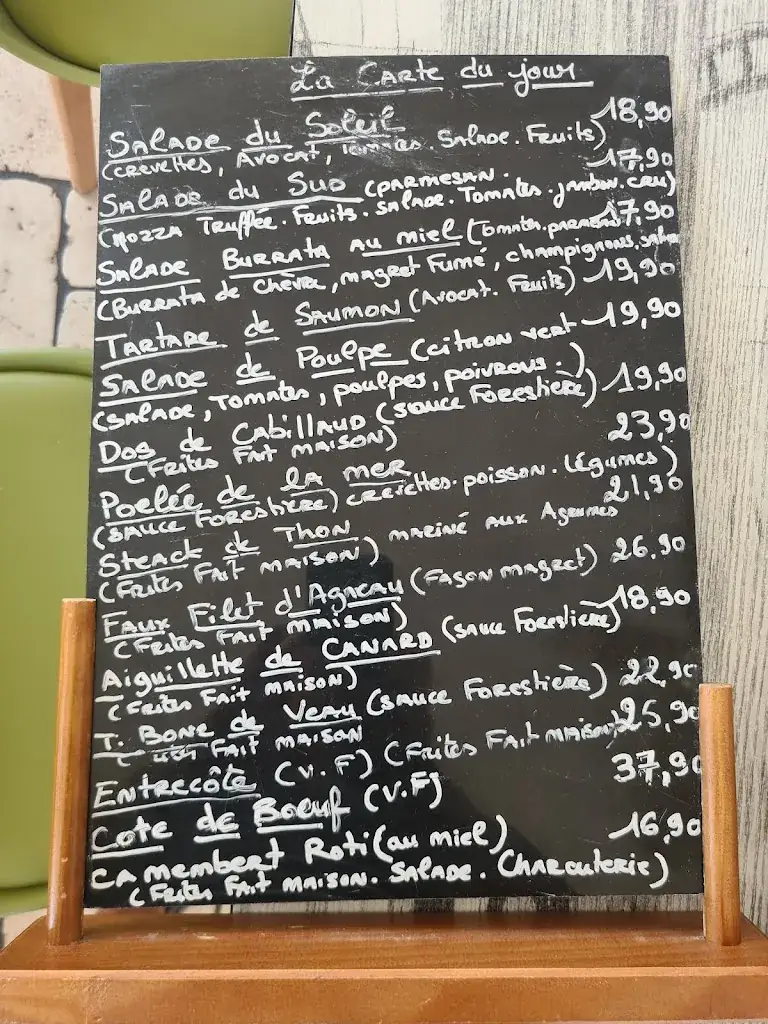 La Carte du jour
Salade du Soleil 18,90
(Crevettes, Avocat, Tomates. Salade. Fruits)
Salade du Sud (Parmesan. 17,90
(Mozza Truffée. Fruits. Salade. Tomates. jambon. cru)
Salade Burrata au miel (Tomates. parmesan 17,90
(Burrata de chèvre, magret Fumé, champignons, salade
Tartare de Saumon (Avocat. Fruits) 19,90
Salade de Poulpe (citron vert 19,90
(Salade, Tomates, poulpes, poivrons.)
Dos de Cabillaud (sauce Forestière) 19,90
(Frites Fait maison)
Poelée de la mer 23,90
(sauce Forestière) crevettes. poisson. légumes)
Steack de Thon mariné aux Agrumes 21,90
(Frites Fait maison)
Faux Filet d'Agneau (Fason magret) 26,90
(Frites Fait maison)
Aiguillette de Canard (sauce Forestière) 18,90
(Frites Fait maison)
T. Bone de Veau (sauce Forestière) 22,90
(Frites Fait maison
Entrecôte (V.F) (Frites Fait maison) 25,90
Cote de Boeuf (V.F) 37,90
Camembert Roti (au miel) 16,90
(Frites Fait maison. Salade. Charcuterie)